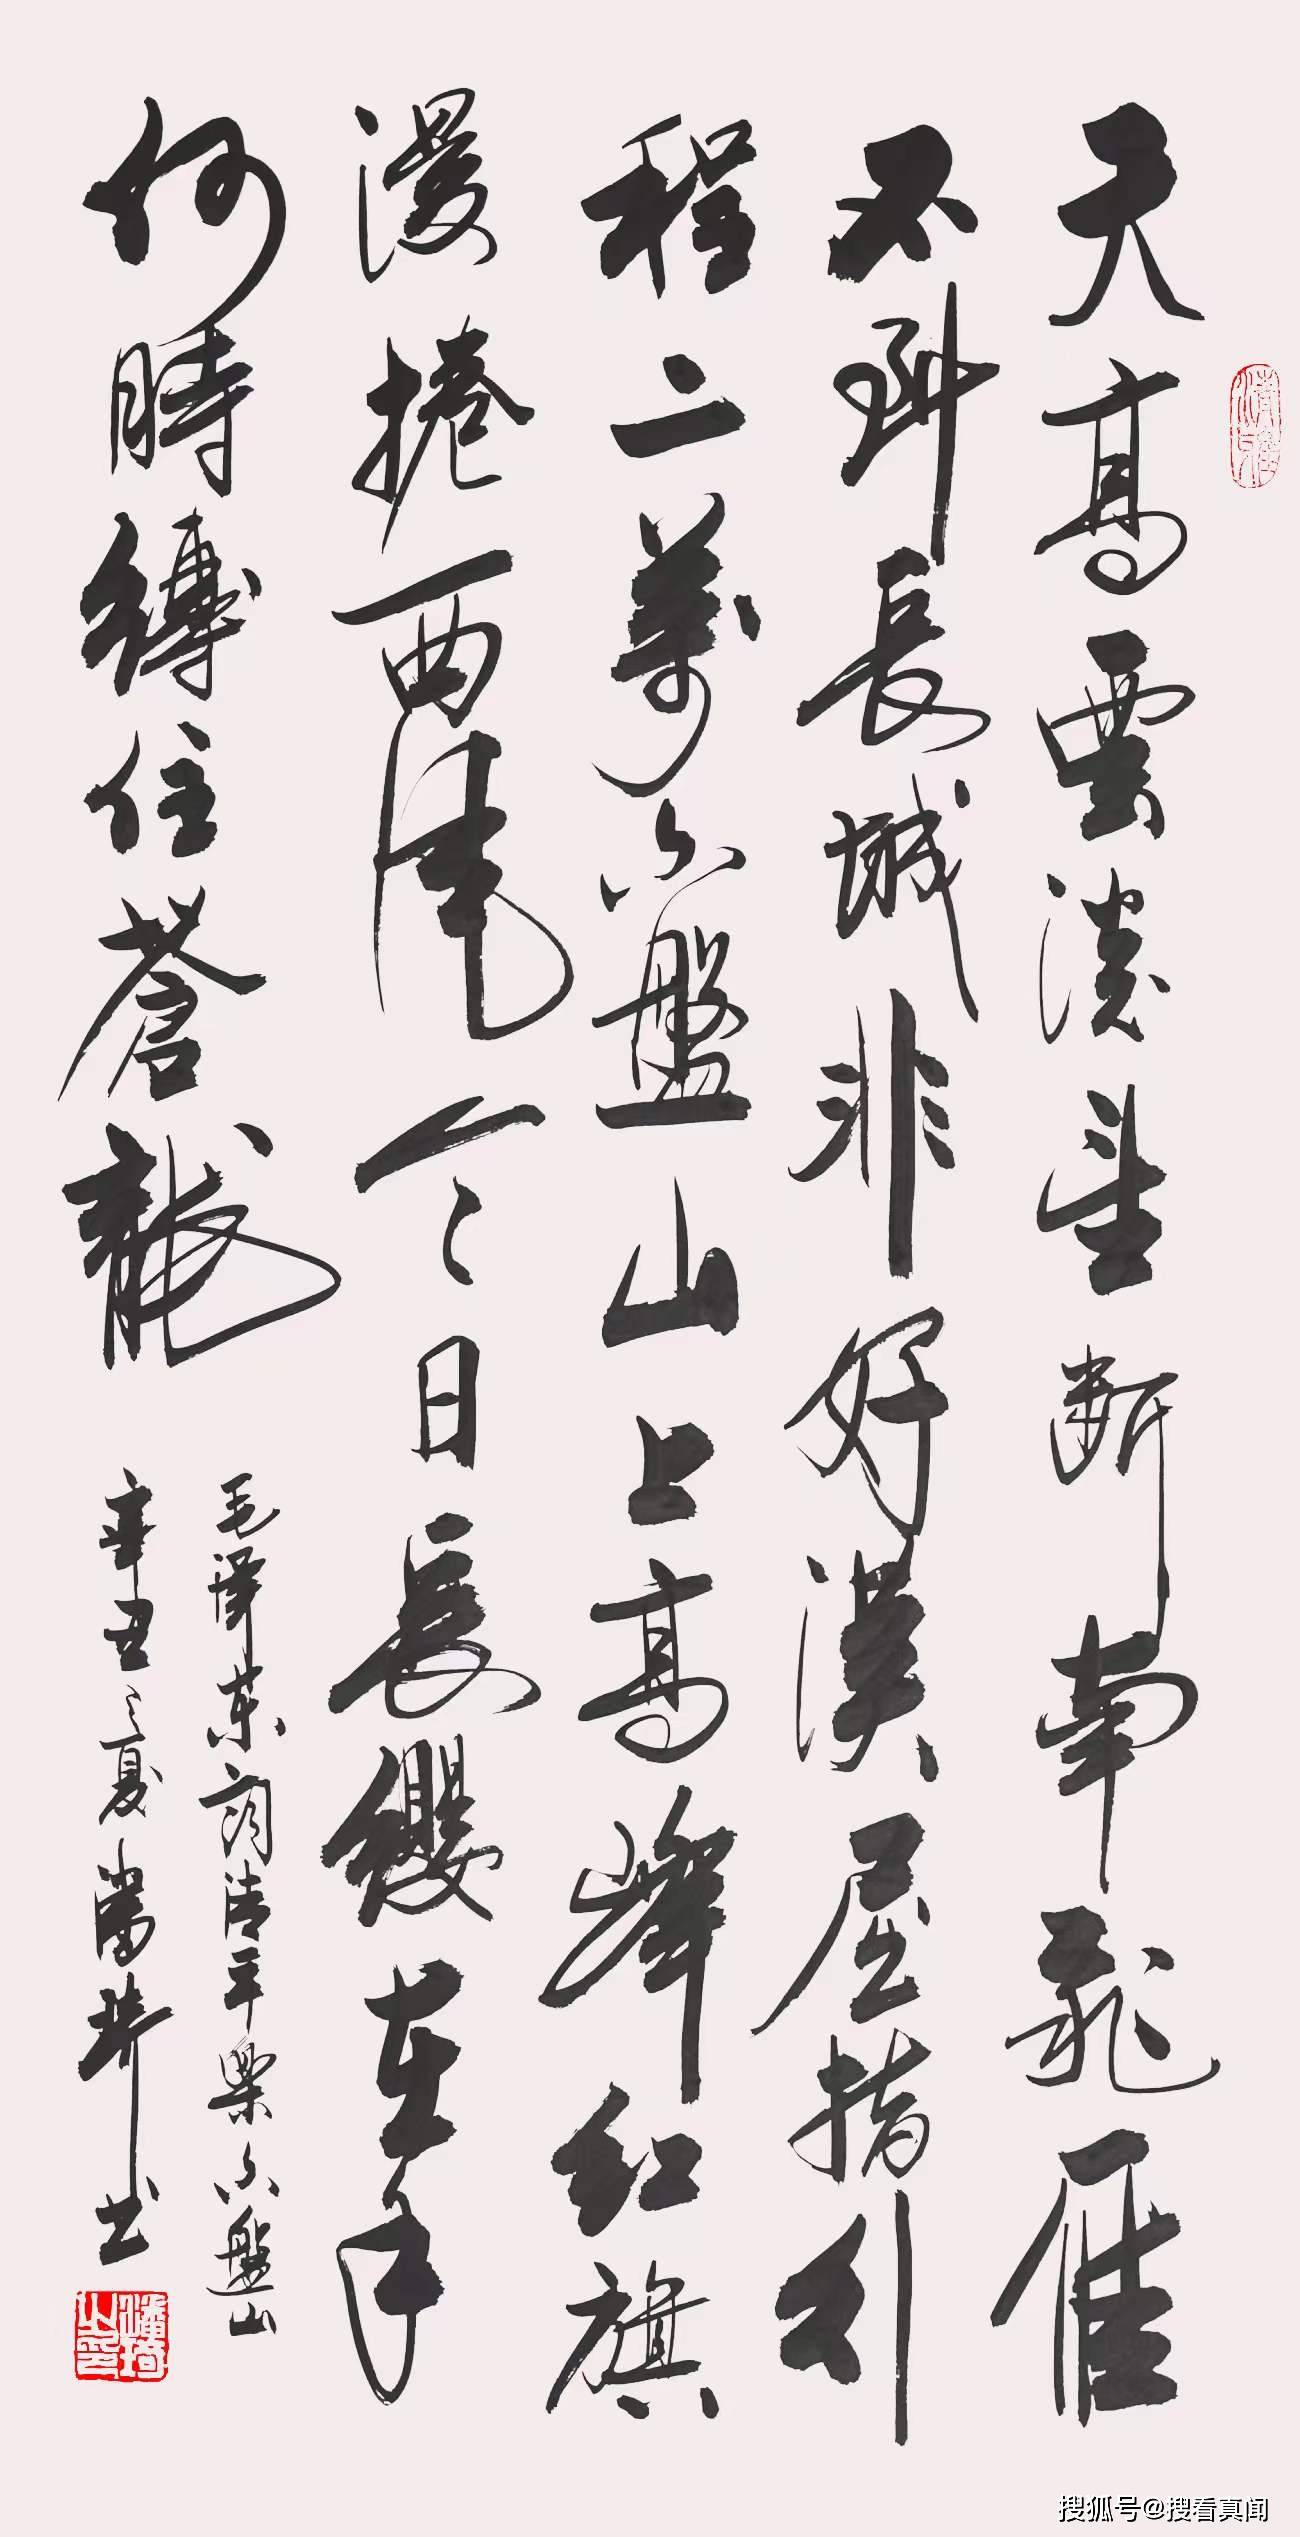 天高雲淡望斷南飛雁
不到長城非好漢屈指行
程二萬六盤山上高峰紅旗
漫捲西風今日長纓在手
何時縛住蒼龍
毛澤東詞清平樂六盤山
辛丑之夏潘琦书
潘琦之印
搜狐号@搜看真闻